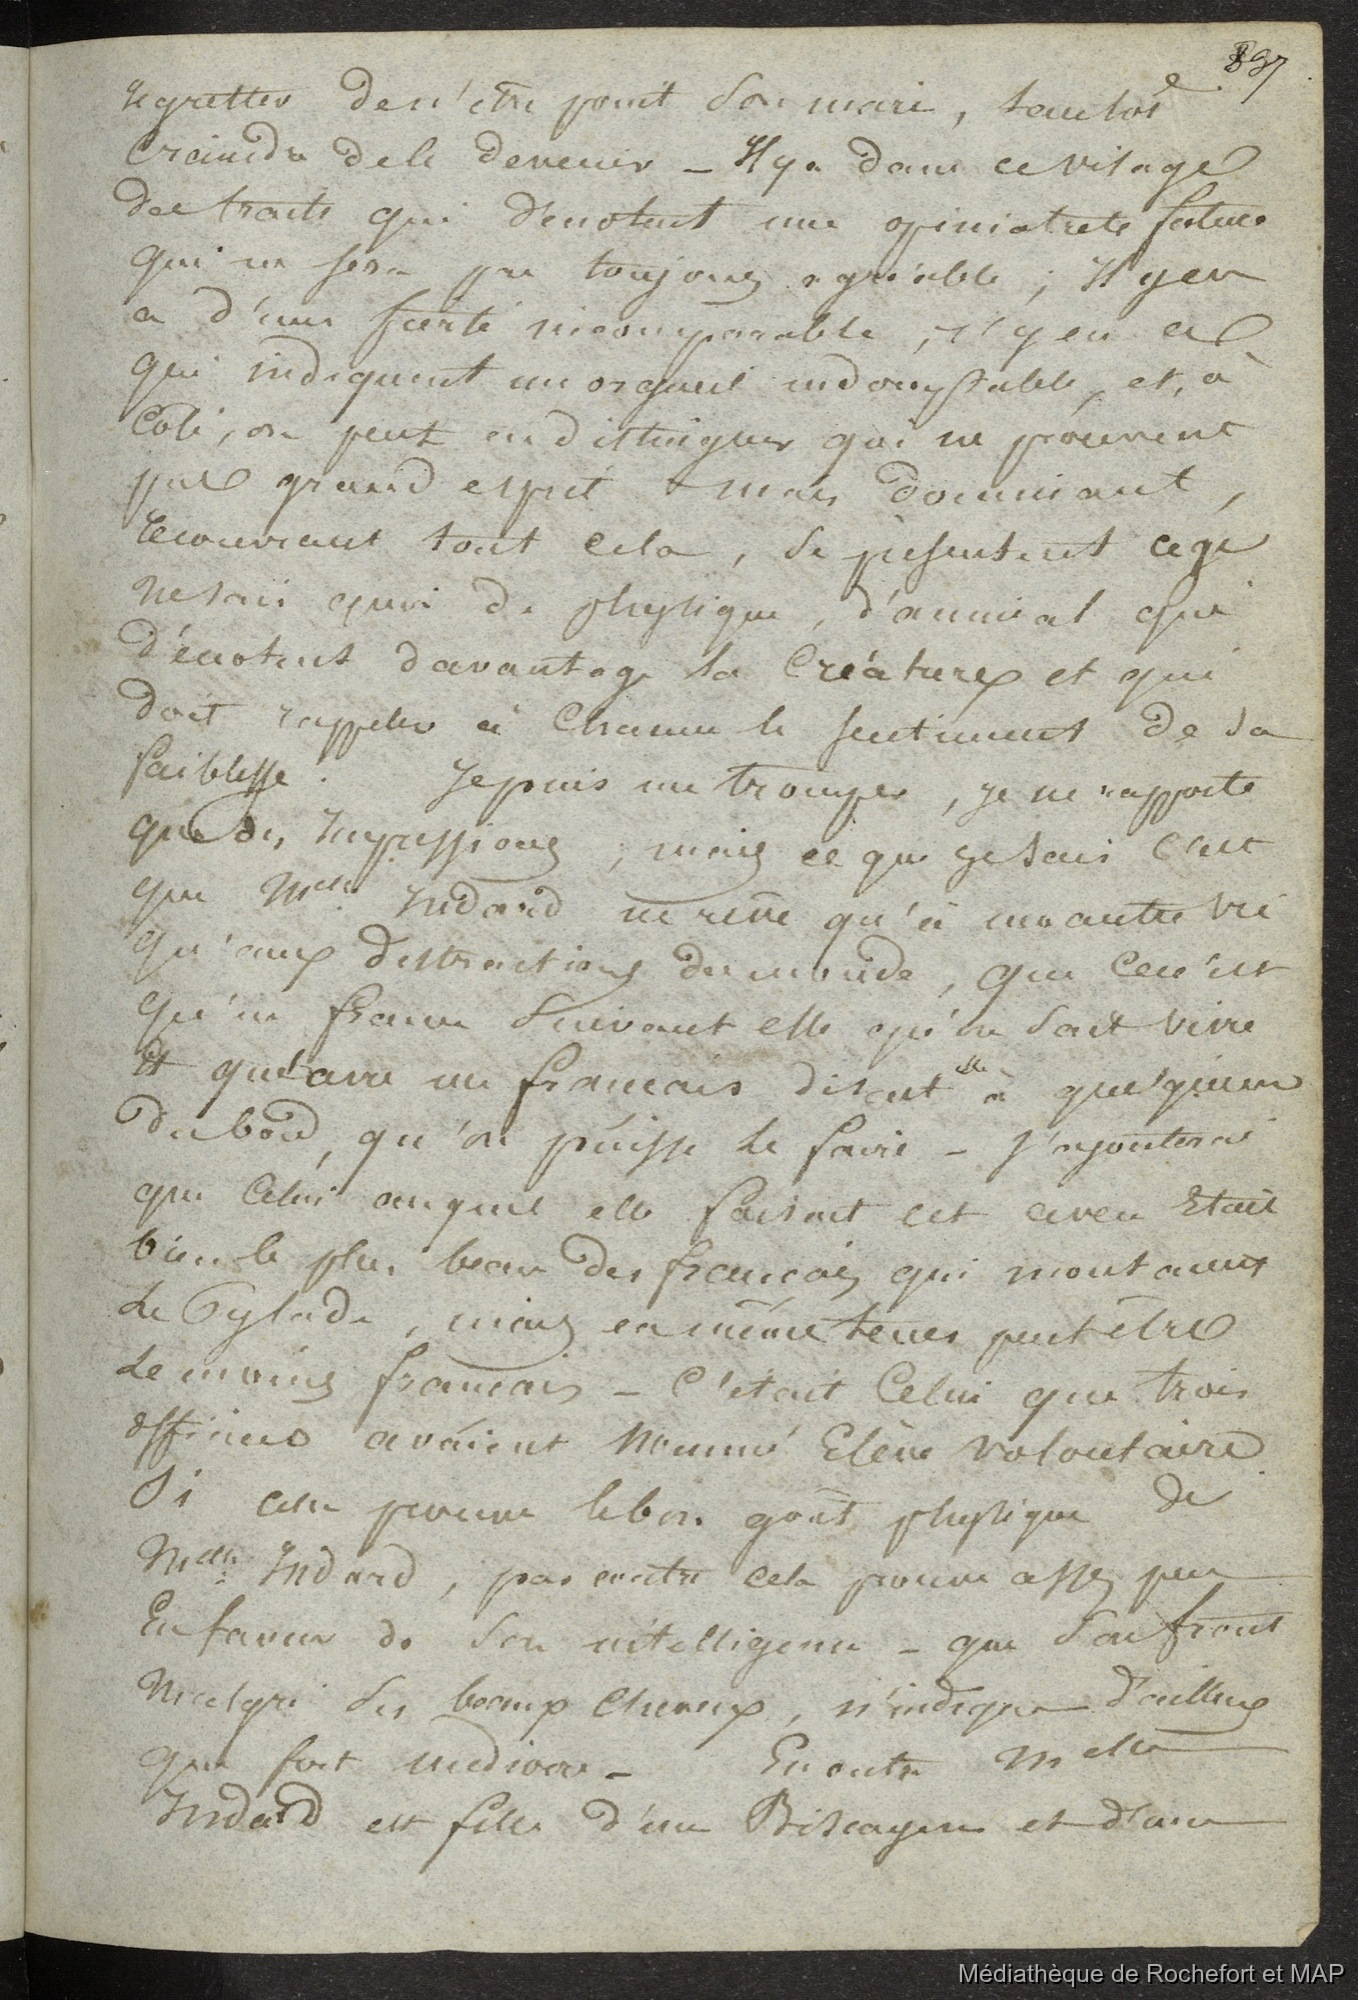 897
regretter de n'être point son mari, tantot
Craindre de le devenir – Il y a dans ce visage
des traits qui dénotent une opiniatreté future
qui ne sera pas toujours agréable ; Il y en
a d'une fierté incomparable, il y en a
qui indiquent un orgueil indomptable, et, à
Coté, on peut en distinguer qui ne prouvent
pas grand esprit – mais dominant,
recouvrant tout cela, se présentent ce je
ne sais quoi de physique, d'animal qui
dénotent davantage la Créature et qui
doit rappeler à Chacun le sentiment de sa
faiblesse. Je puis me tromper, je ne rapporte
que des Impressions, mais ce que je sais c'est
que Melle Indard ne rêve qu'à une autre vie
qu'aux distractions du monde, que ce n'est
qu'en france suivant elle qu'on sait vivre
et qu'avec un francais disait elle à quelqu'un
du bord, qu'on puisse le faire – J'ajouterai
que Celui auquel elle faisait cet aveu Etait
bien le plus beau des francais qui montaient
Le Pylade, mais en même temps peut être
Le moins francais – C'était Celui que trois
officiers avaient nommé Elève volontaire
Si cela prouve le bon goût physique de
Melle Indard, par contre cela prouve assez peu
En faveur de son intelligence – que son front
malgré ses beaux cheveux, n'indique d'ailleurs
que fort mediocre – En outre Melle
Indard est fille d'un Biscayen et d'une
Médiathèque de Rochefort et MAP